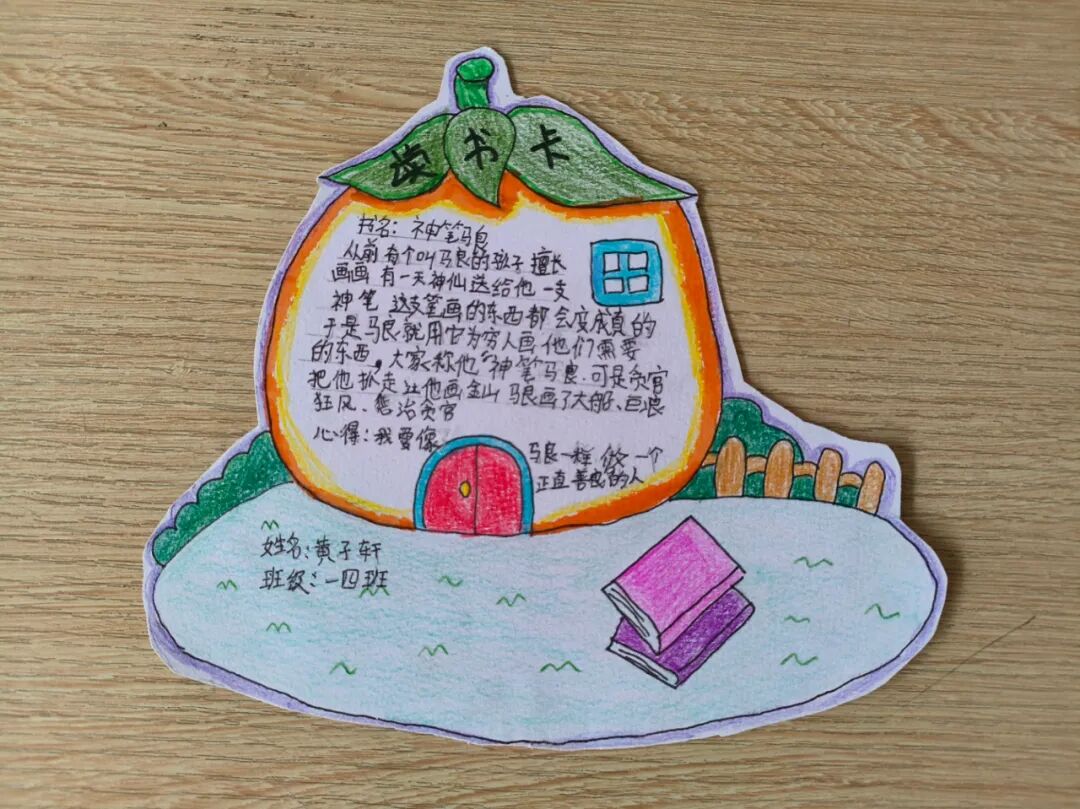 读书卡
书名：神笔马良
从前有个叫马良的孩子擅长
画画 有一天神仙送给他一支
神笔 这支笔画的东西都会变成真的
于是马良就用它为穷人画他们需要
的东西，大家称他“神笔马良.可是贪官
把他抓走让他画金山 马良画了大船、巨浪
狂风、惩治贪官
心得：我要像
马良一样做一个
正直善良的人
姓名：黄子轩
班级：一四班